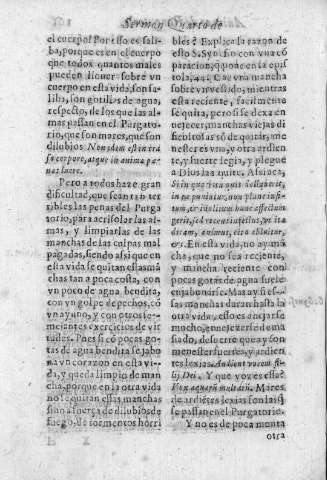 Sermon Quarto de
el cuerpo? Por esso es sali-
ba, porque es en el cuerpo
que todos quantos males
pueden llouer sobre vn
cuerpo en esta vida, son sa-
liba, son gotillas de agua,
respecto, de los que las al-
mas passan en el Purgato-
rio, que son mares, que son
dilubios. Non idem est in tra
so corpore, atque in anima pœ-
nas luere.
Pero a todos haze gran
dificultad, que sean tan ter
ribles las penas del Purga
torio, para acrisolar las al-
mas, y limpiarlas de las
manchas de las culpas mal
pagadas, siendo assi que en
esta vida se quitan essas mã
chas tan a poca costa, con
vn poco de agua bendita,
con vn golpe de pechos, cõ
vn ayuno, y con otros se-
mejantes exercicios de vir
tudes. Pues si cõ pocas go-
tas de agua bendita se jabo
na vn coraçon en esta vi-
da, y queda limpio de man
cha, porque en la otra vida
no se quitan essas manchas
sino a fuerça de dilubios de
fuego, de tormentos horri
bles? Explica la razon de
esto S.
paracion, que
tola, 44. Cae vna mancha
sobre vn vestido, mientras
esta reciente, facilmente
se quita, pero si se dexa en
vejecer, manchas viejas di
ficultosas so de quitar, me
nester es viua, y otra ardien
te, y fuerte legia, y plegue
a Dios las quite. Assi acà,
Si in qua
in pœ
gerit, sed recens
diram, animus, cito
&c. En esta vida, no ay mã
cha, que no sea reciente,
y mancha reciente con
pocas gotas de agua suele
enjabonarse. Mas ay si es-
sas manchas duran hasta la
otra vida, esso es anejarse
mucho, envejezerse dema
siado, de suerte que ay son
menester fuertes, y ardien
tes lexias. Audient vocem fi-
lij Dei. Y que voz es esse?
Vox aquarũ multarũ. Mares
de ardietes lexias son las q̃
se passan en el Purgatorio.
Y no es de poca monta
otra